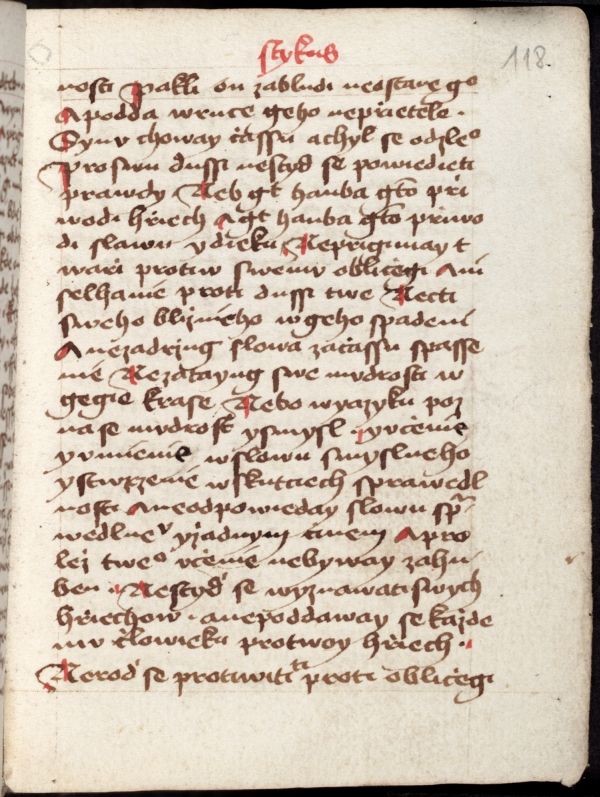 stykus
118.
nosti Pakli on zabludi neostane geo
Apodda wruce geho neprietele .
Synu choway cassu achyl se odzleo
Pro swu dussi nestyd se powiedieti
prawdy Neb gt hanba gto pri
wodi hriech Agt hanba gto priwo
di slawu ydieku Neprigimay t
wari protiw swemu obliczegi Ani
selhanie proti dussi twe Necti
sweho blizneho wgeho spadeni
Anezadrzug slowa zacassu spasse
nie Nezatayug swe mudrosti w
gegie krase Nebo wyazyku poz
na se mudrost ysmysl . yucenie
yumienie wslowu smyslneho
ystwrzenie wskutciech sprawedl
nosti Aneodpowieday slowu spra
wedlneu yzadnym cinem Apro
lez tweo ucenie nebyway zahn
ben . Nestyd se wyznawati swych
hriechow . anepoddaway se kazde
mu clowieku protwoy hriech .
Nerod se protiwiti proti obliczegi